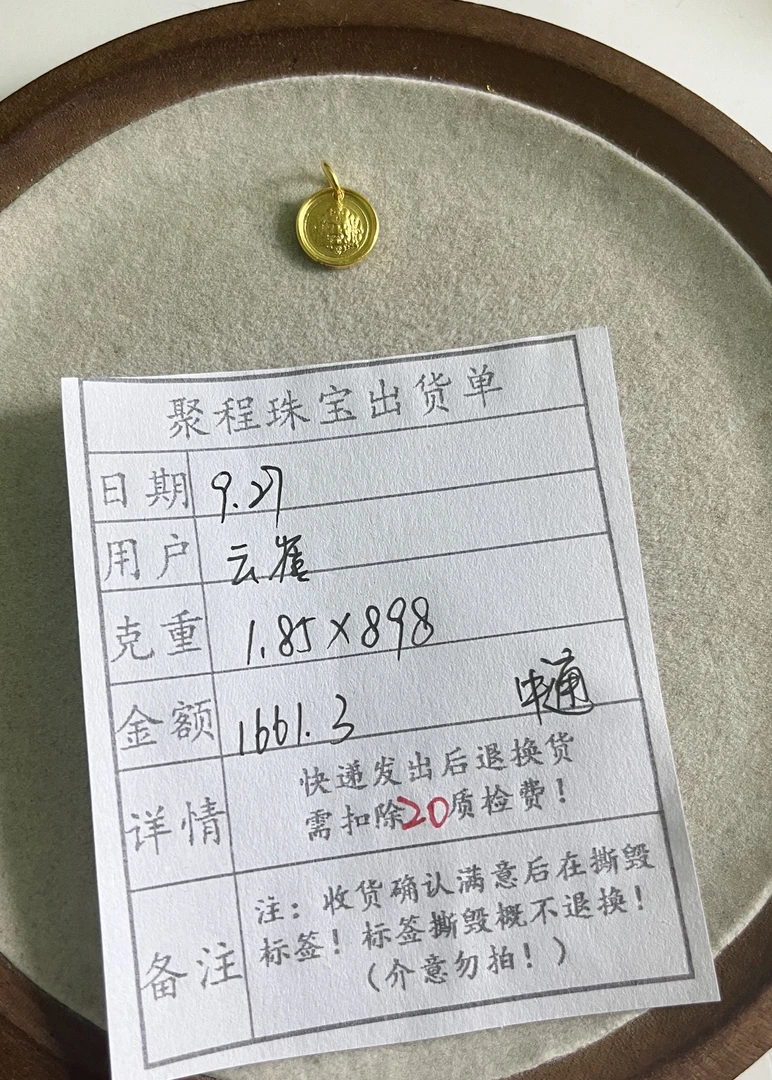 聚程珠宝出货单
日期 9.27
用户 云雀
克重 1.85×898
金额 1661.3 申通
详情 快递发出后退换货
需扣除20质检费！
备注 注：收货确认满意后在撕毁
标签！标签撕毁概不退换！
（介意勿拍！）